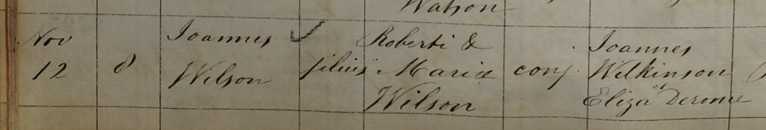 Watson
Nov Joannes ✓ Roberti & Joannes
12 8 Wilson filius Mariæ conj Wilkinson
Wilson Eliza